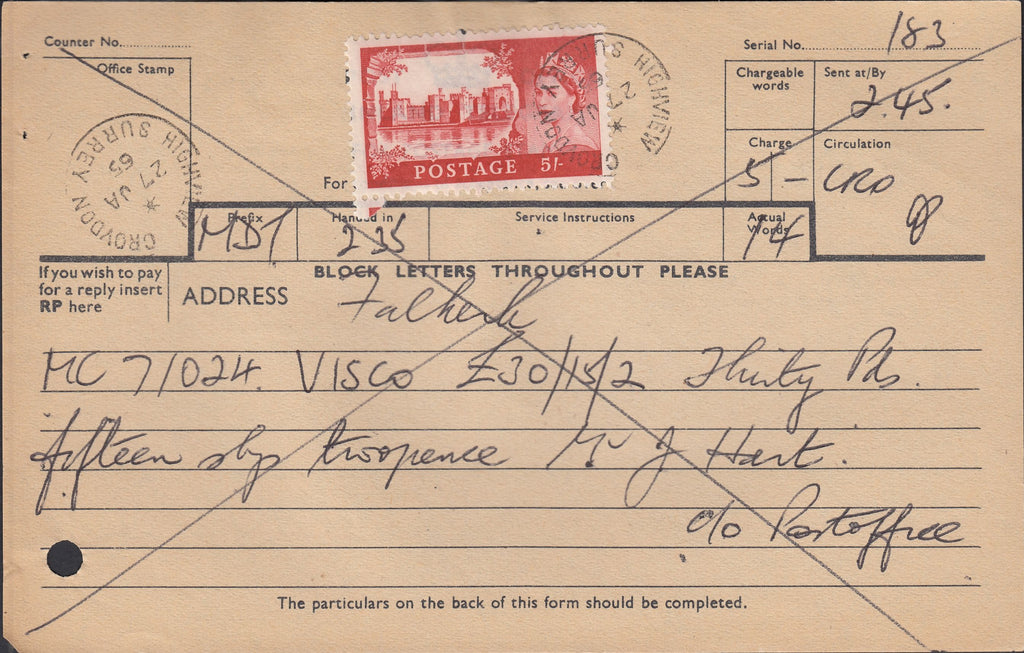 Counter No.
Serial No. 183
Office Stamp
Chargeable words
Sent at/By
2.45.
Charge
5 -
Circulation
CRO
POSTAGE 5/-
HIGHVIEW
CROYDON SURREY
27 JA 65
HIGHVIEW
CROYDON SURREY
27 JA 65
For
Prefix
MDT
Handed in
2 35
Service Instructions
Actual Words
14
If you wish to pay
for a reply insert
RP here
BLOCK LETTERS THROUGHOUT PLEASE
ADDRESS
Falkirk
MC 7/024. VISCO £30/15/2 Thirty Pds.
fifteen shgs twopence Mr J Hart.
c/o Postoffice
The particulars on the back of this form should be completed.